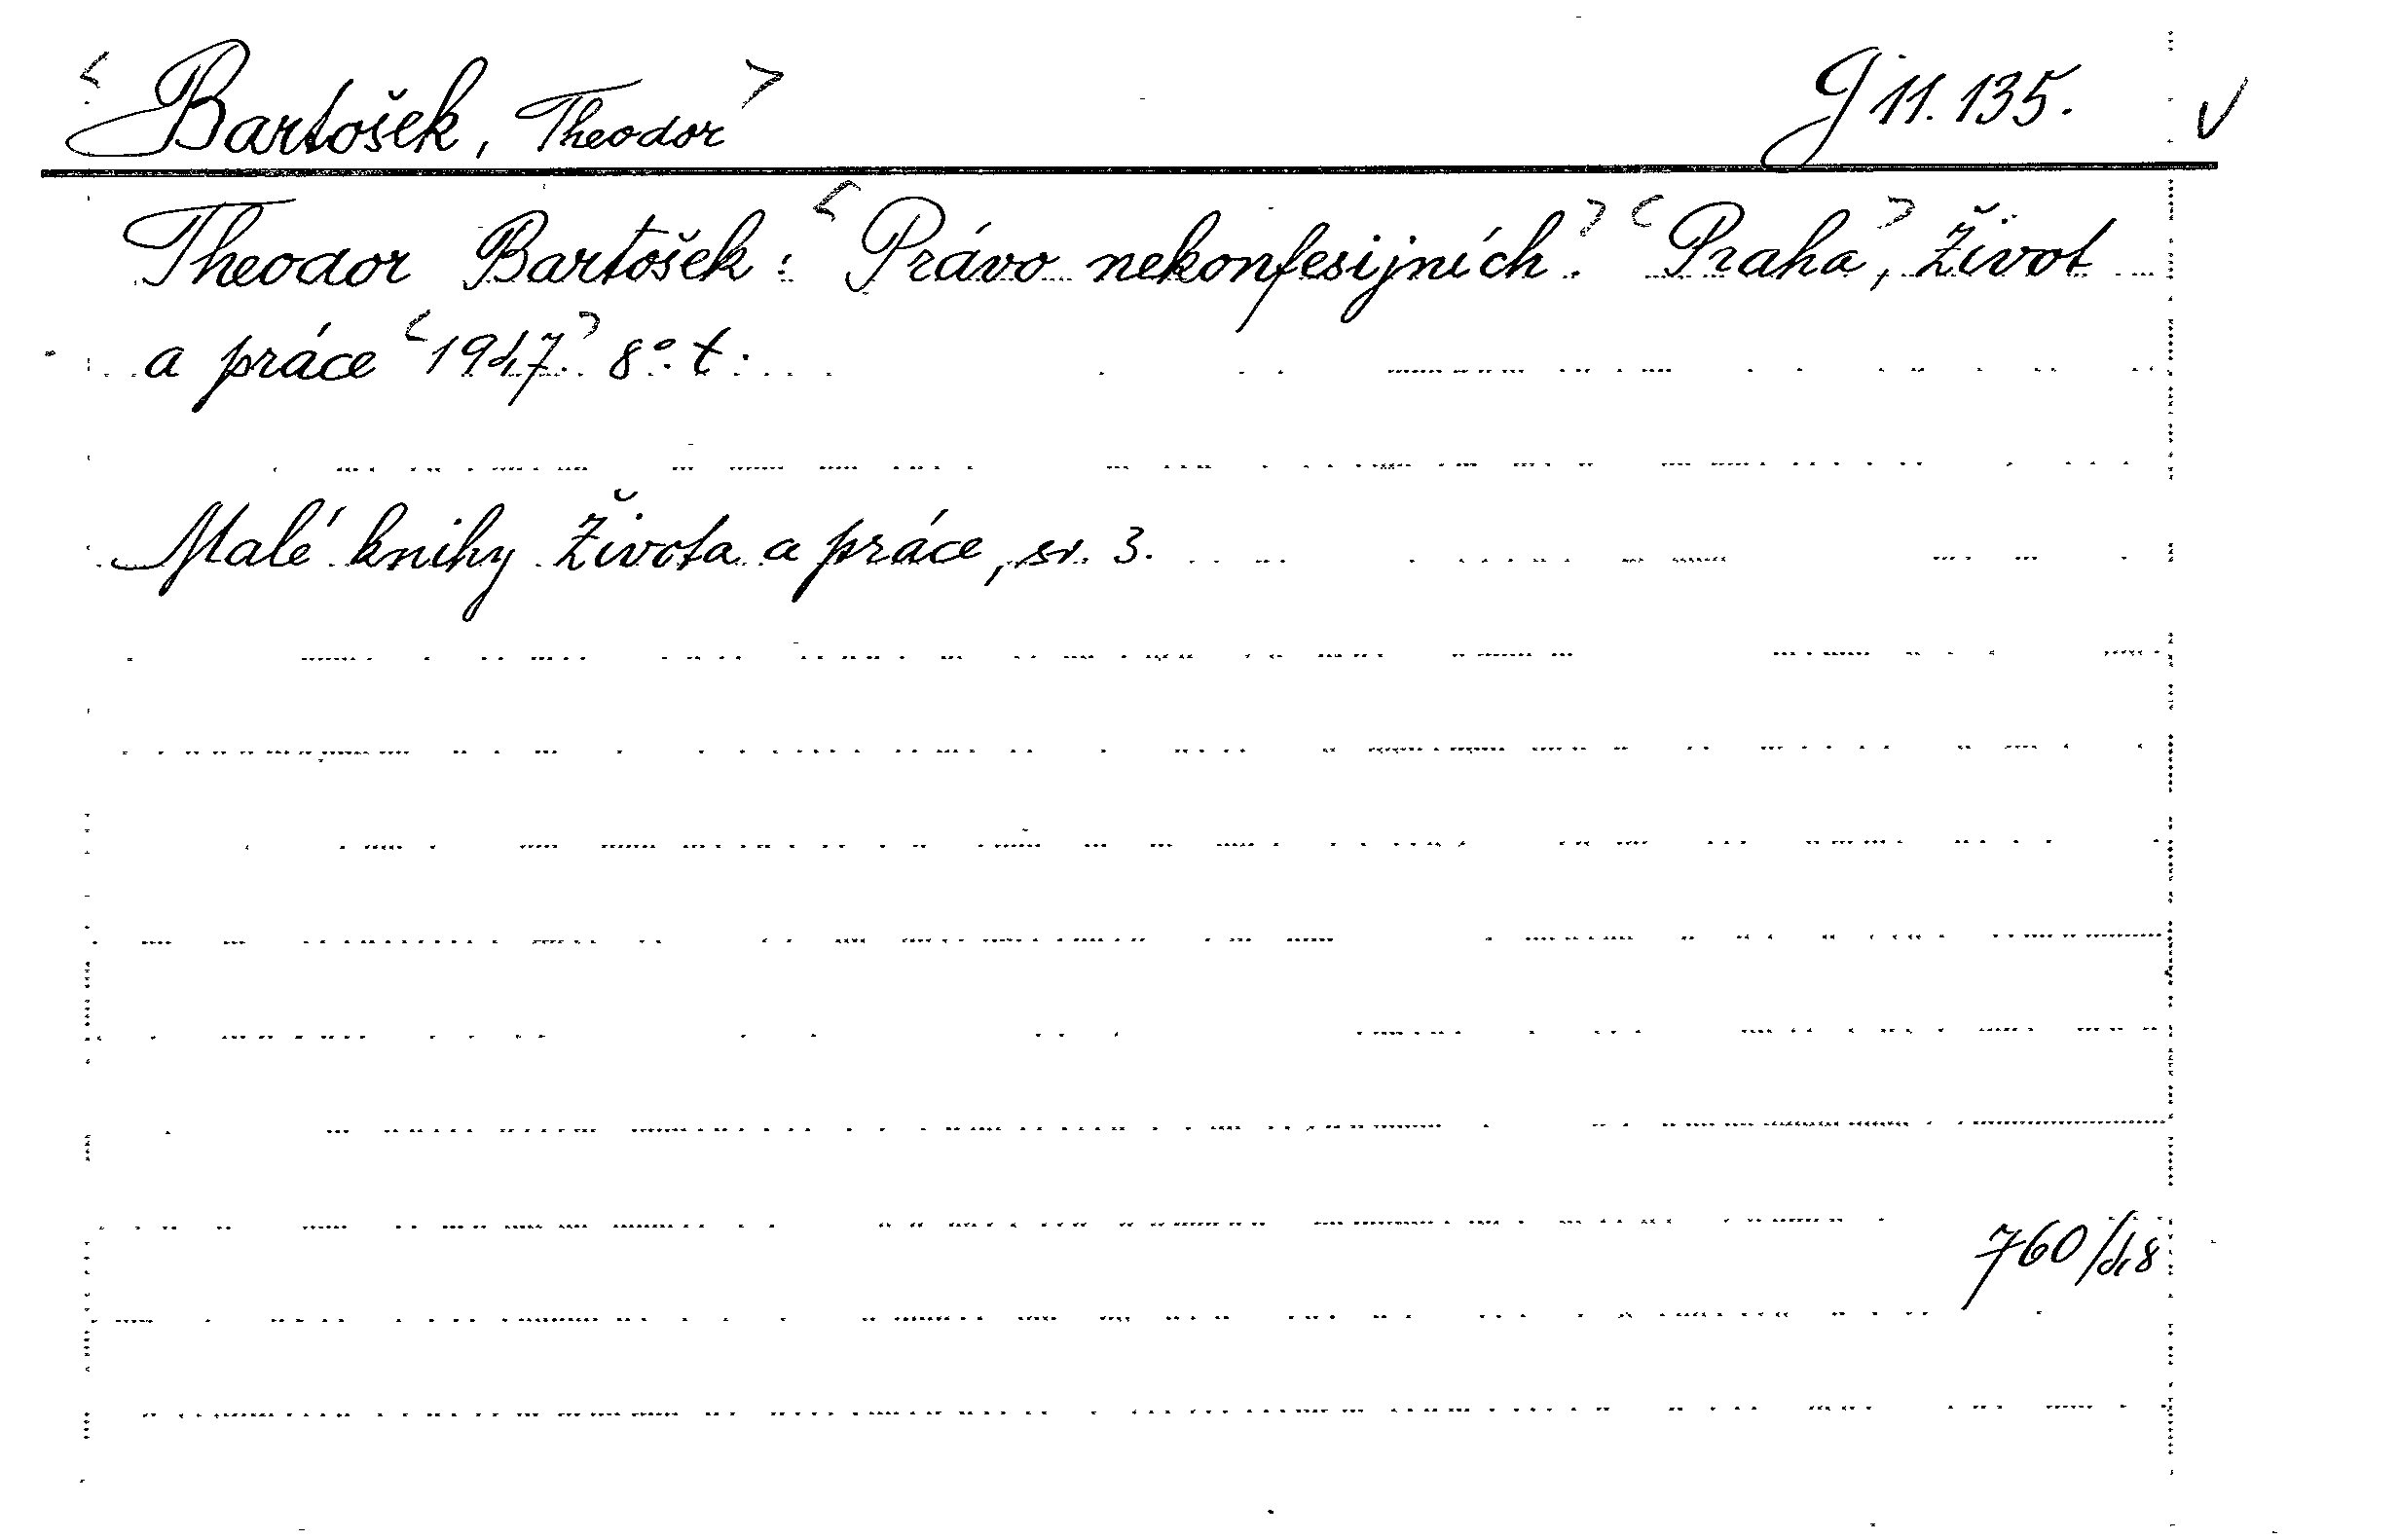 <Bartošek, Theodor> J 11.135. V
Theodor Bartošek: <Právo nekonfesijních.> <Praha>, Život
a práce <1947.> 8°. t.
Malé knihy Života a práce, sv. 3.
760/48